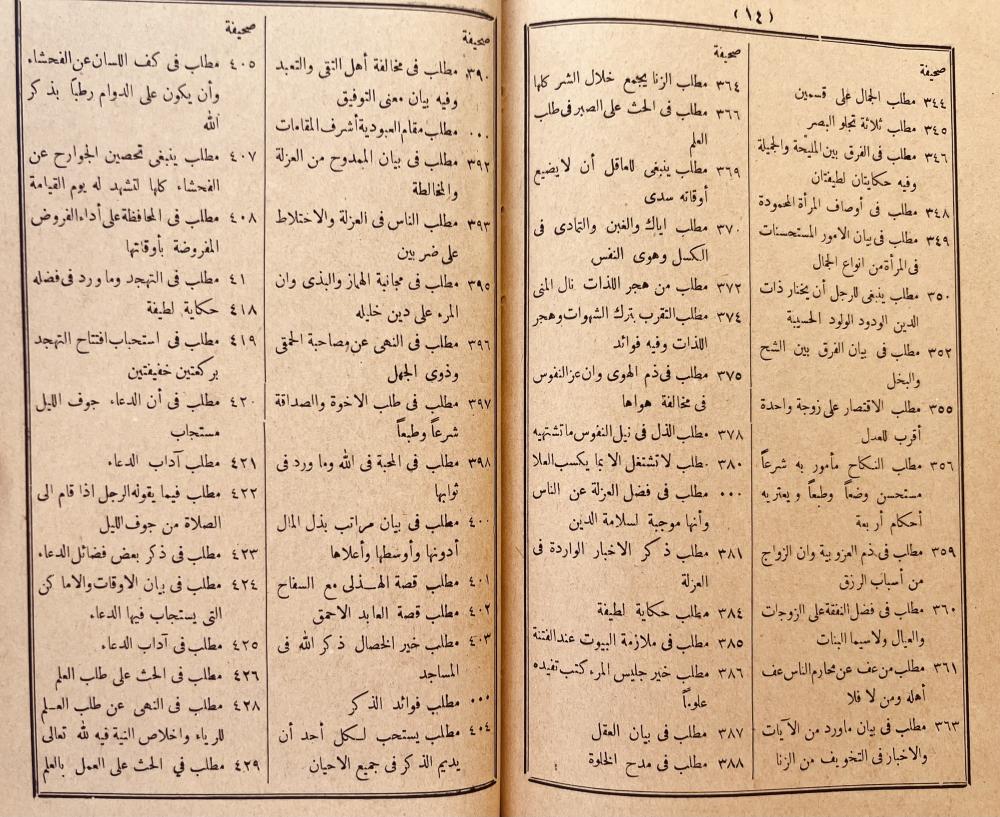 (١٤)
صحيفة
٣٤٤ مطلب الجمال على قسمين
٣٤٥ مطلب ثلاثة تجلو البصر
٣٤٦ مطلب فى الفرق بين المليحة والجميلة
وفيه حكايتان لطيفتان
٣٤٨ مطلب فى أوصاف المرأة المحمودة
٣٤٩ مطلب فى بيان الامور المستحسنات
فى المرأة من انواع الجمال
٣٥٠ مطلب ينبغى للرجل أن يختار ذات
الدين الودود الولود الحسيبة
٣٥٢ مطلب فى بيان الفرق بين الشح
والبخل
٣٥٥ مطلب الاقتصار على زوجة واحدة
أقرب للعدل
٣٥٦ مطلب النكاح مأمور به شرعاً
مستحسن وضعاً وطبعاً ويعتريه
أحكام أربعة
٣٥٩ مطلب فى ذم العزوبية وان الزواج
من أسباب الرزق
٣٦٠ مطلب فى فضل النفقة على الزوجات
والعيال ولاسيما البنات
٣٦١ مطلب من عف عن محارم الناس عف
أهله ومن لا فلا
٣٦٣ مطلب فى بيان ماورد من الآيات
والاخبار فى التخويف من الزنا
صحيفة
٣٦٤ مطلب الزنا يجمع خلال الشر كلها
٣٦٦ مطلب فى الحث على الصبر فى طلب
العلم
٣٦٩ مطلب ينبغى للعاقل أن لايضيع
أوقاته سدى
٣٧٠ مطلب اياك والغبن والتمادى فى
الكسل وهوى النفس
٣٧٢ مطلب من هجر اللذات نال المنى
٣٧٤ مطلب التقرب بترك الشهوات وهجر
اللذات وفيه فوائد
٣٧٥ مطلب فى ذم الهوى وان عز النفوس
فى مخالفة هواها
٣٧٨ مطلب الذل فى نيل النفوس ماتشتهيه
٣٨٠ مطلب لا تشتغل الا بما يكسب العلا
٠٠٠ مطلب فى فضل العزلة عن الناس
وأنها موجبة لسلامة الدين
٣٨١ مطلب ذكر الاخبار الواردة فى
العزلة
٣٨٤ مطلب حكاية لطيفة
٣٨٥ مطلب فى ملازمة البيوت عند الفتنة
٣٨٦ مطلب خير جليس المرء كتب تفيده
علوماً
٣٨٧ مطلب فى بيان العقل
٣٨٨ مطلب فى مدح الخلوة
صحيفة
٣٩٠ مطلب فى مخالفة أهل التقى والتعبد
وفيه بيان معنى التوفيق
٠٠٠ مطلب مقام العبودية أشرف المقامات
٣٩٢ مطلب فى بيان الممدوح من العزلة
والمخالطة
٣٩٣ مطلب الناس فى العزلة والاختلاط
على ضربين
٣٩٥ مطلب فى مجانبة الهماز والبذى وان
المرء على دين خليله
٣٩٦ مطلب فى النهى عن مصاحبة الحمقى
وذوى الجهل
٣٩٧ مطلب فى طلب الاخوة والصداقة
شرعاً وطبعاً
٣٩٨ مطلب فى المحبة فى الله وما ورد فى
ثوابها
٤٠٠ مطلب فى بيان مراتب بذل المال
أدونها وأوسطها وأعلاها
٤٠١ مطلب قصة الهـذلى مع السفاح
٤٠٢ مطلب قصة العابد الاحمق
٤٠٣ مطلب خير الخصال ذكر الله فى
المساجد
٠٠٠ مطلب فوائد الذكر
٤٠٤ مطلب يستحب لكل أحد أن
يديم الذكر فى جميع الاحيان
صحيفة
٤٠٥ مطلب فى كف اللسان عن الفحشاء
وأن يكون على الدوام رطباً بذكر
الله
٤٠٧ مطلب ينبغى تحصين الجوارح عن
الفحشاء كلها لتشهد له يوم القيامة
٤٠٨ مطلب فى المحافظة على أداء الفروض
المفروضة بأوقاتها
٤١ مطلب فى التهجد وما ورد فى فضله
٤١٨ حكاية لطيفة
٤١٩ مطلب فى استحباب افتتاح التهجد
بركعتين خفيفتين
٤٢٠ مطلب فى أن الدعاء جوف الليل
مستجاب
٤٢١ مطلب آداب الدعاء
٤٢٢ مطلب فيما يقوله الرجل اذا قام الى
الصلاة من جوف الليل
٤٢٣ مطلب فى ذكر بعض فضائل الدعاء
٤٢٤ مطلب فى بيان الاوقات والاماكن
التى يستجاب فيها الدعاء
٤٢٥ مطلب فى آداب الدعاء
٤٢٦ مطلب فى الحث على طلب العلم
٤٢٨ مطلب فى النهى عن طلب العـلم
للرياء واخلاص النية فيه لله تعالى
٤٢٩ مطلب في الحث على العمل بالعلم